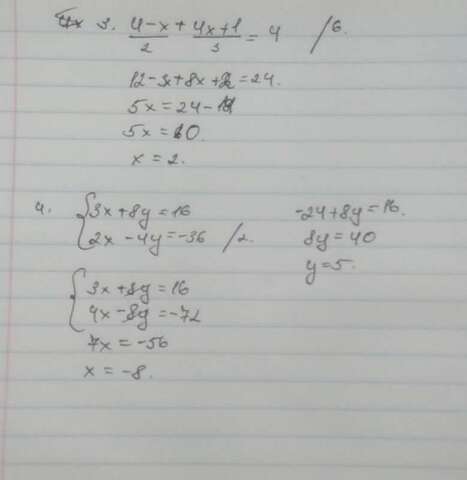 3. 4-x/2 + 4x+1/3 = 4 /6.
12-3x+8x+2=24.
5x=24-14
5x=10.
x=2.
4. {3x+8y=16
2x-4y=-36 /2.
{3x+8y=16
4x-8y=-72
7x=-56
x=-8.
-24+8y=16.
8y=40
y=5.